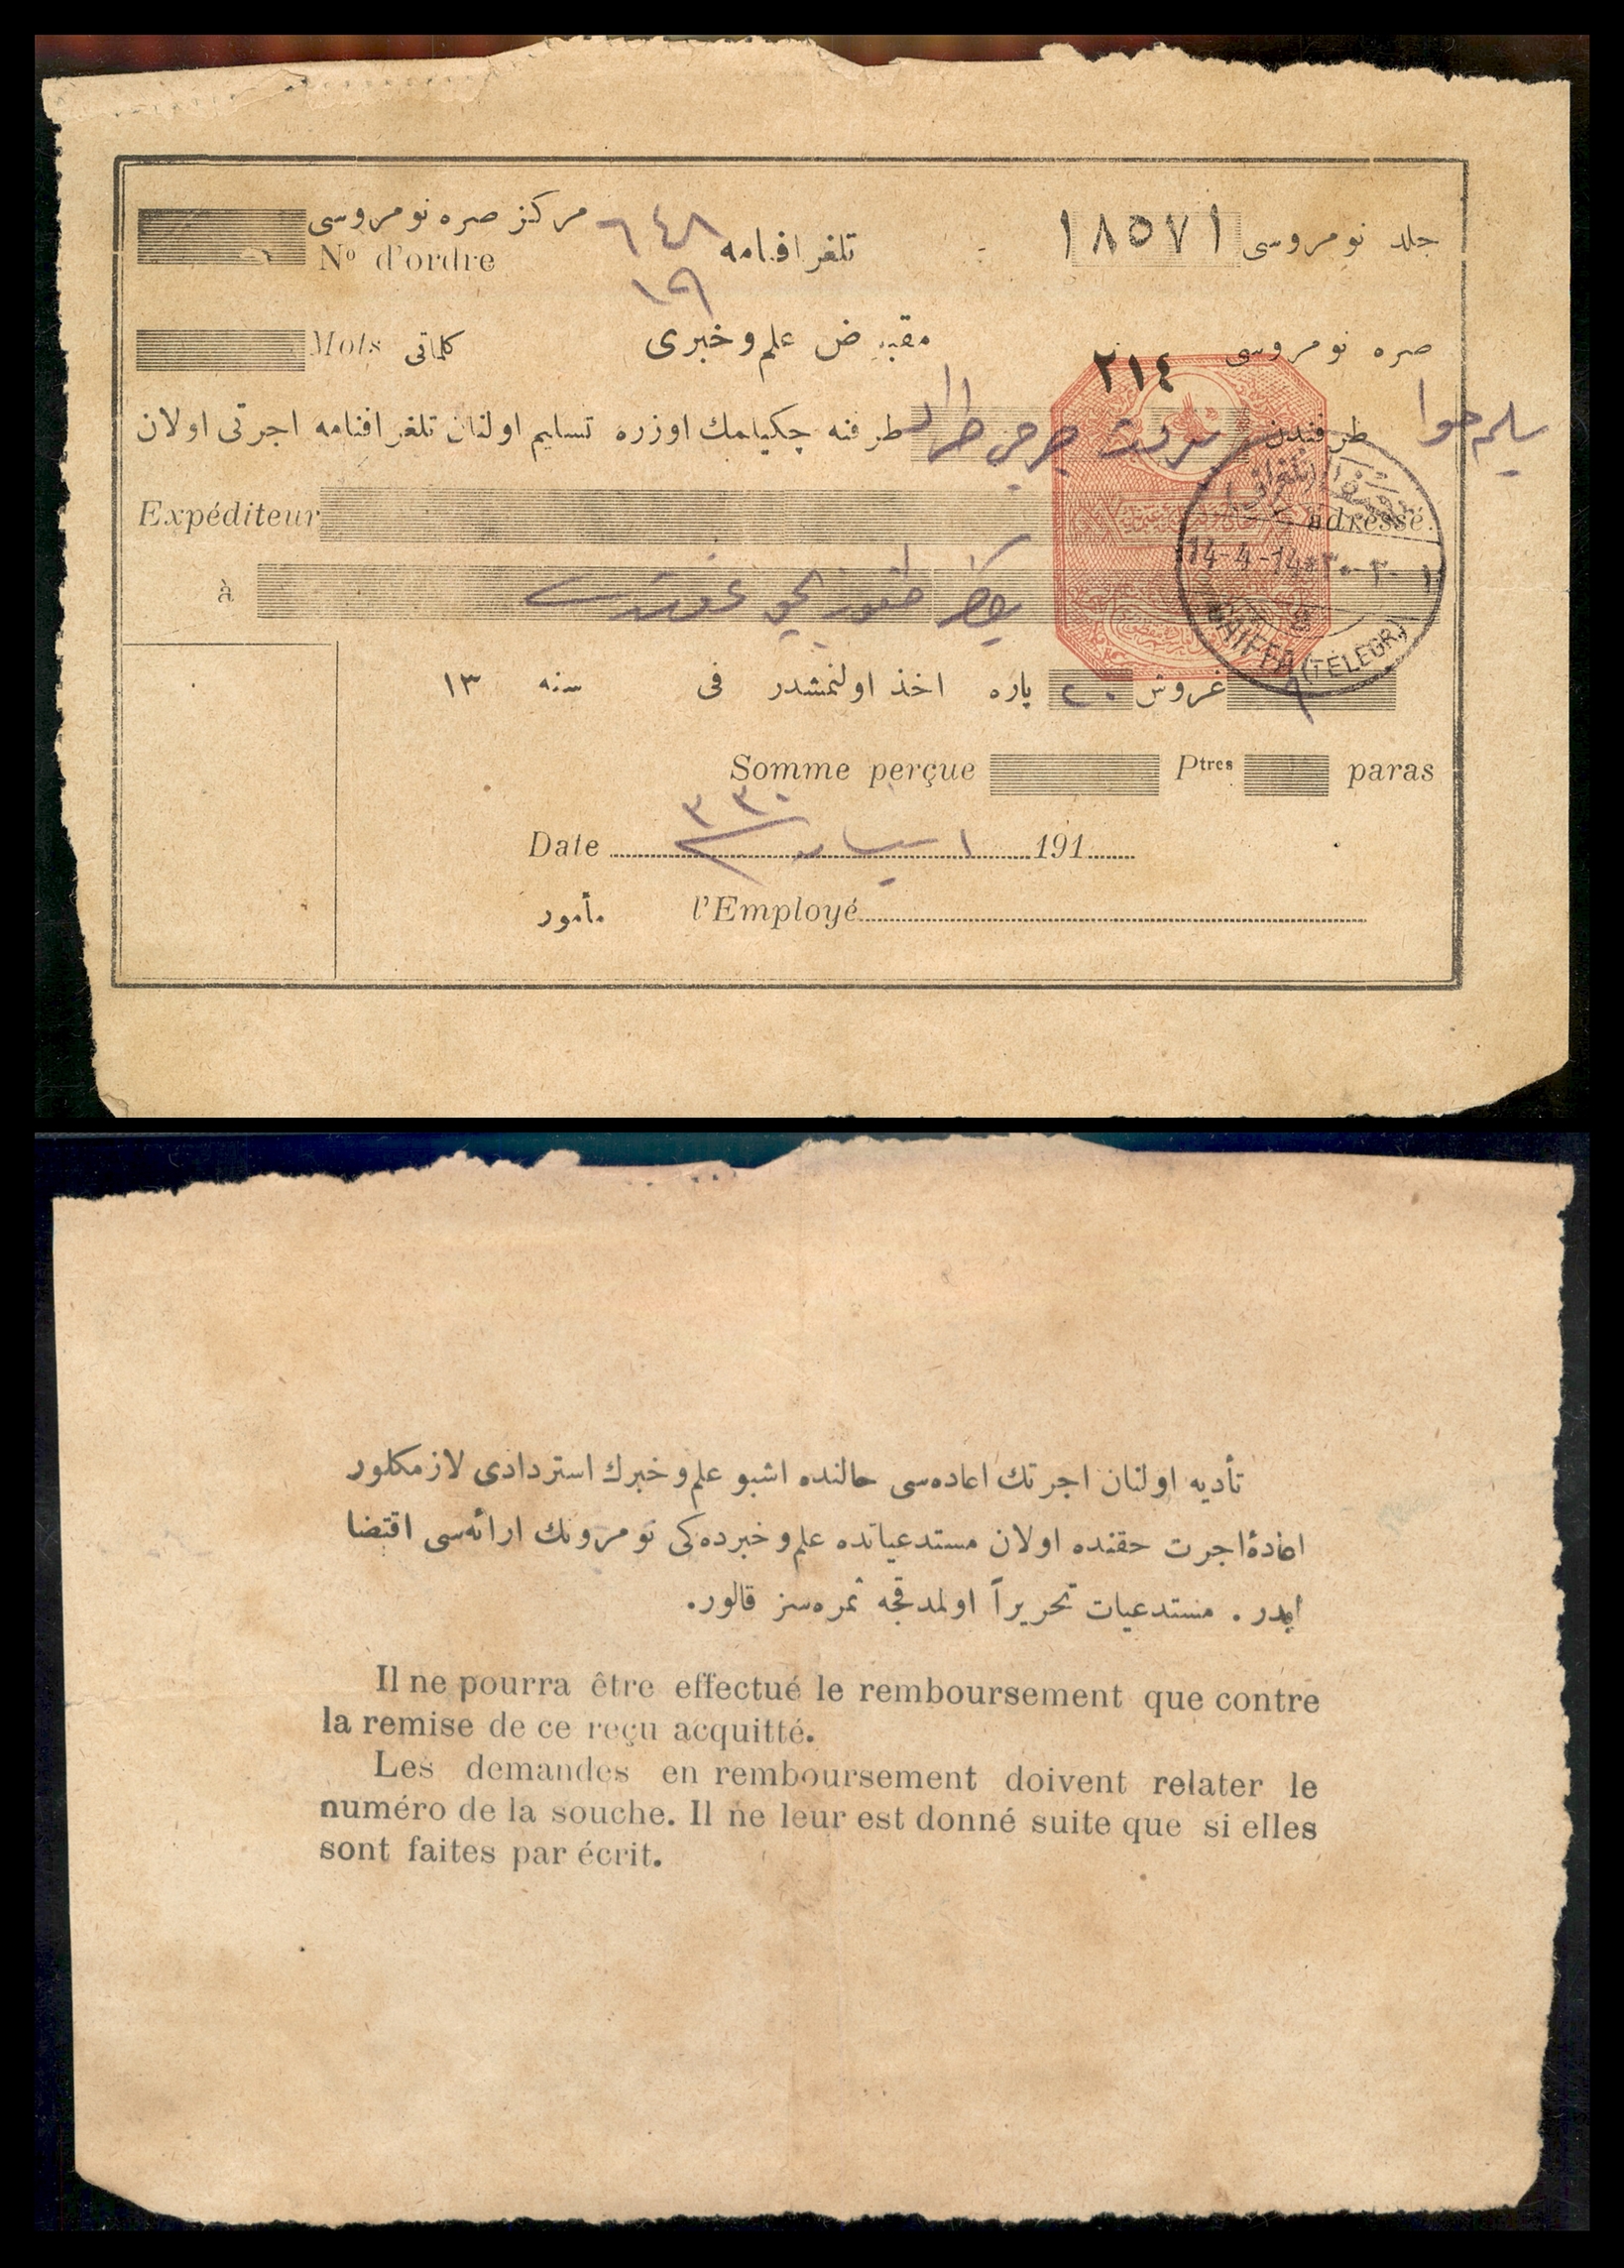 جلد نومروسى ١٨٥٧١
تلغرافنامه ٦٤٨
مركز صره نومروسى
Nº d'ordre
١٩
صره نومروسى ٢١٤
مقبوض علم و خبرى
كلماتى Mots
طرفندن جرجي طراد طرفنه چكيلمك اوزره تسليم اولنان تلغرافنامه اجرتى اولان
Expéditeur adressé
14-4-14
à
HAIFFA (TELEGR.)
٩ غروش ٢٠ پاره اخذ اولنمشدر فى سنه ١٣
Somme perçue Ptres paras
٣٣٠
Date ١ نيسان 191
مأمور l'Employé
تأديه اولنان اجرتك اعاده‌سى حالنده اشبو علم و خبرك استردادى لازمكلور
اعادۀ اجرت حقنده اولان مستدعياتده علم و خبرده‌كى نومرونك ارائه‌سى اقتضا
ايدر. مستدعيات تحريراً اولمدقجه ثمره‌سز قالور.
Il ne pourra être effectué le remboursement que contre
la remise de ce reçu acquitté.
Les demandes en remboursement doivent relater le
numéro de la souche. Il ne leur est donné suite que si elles
sont faites par écrit.